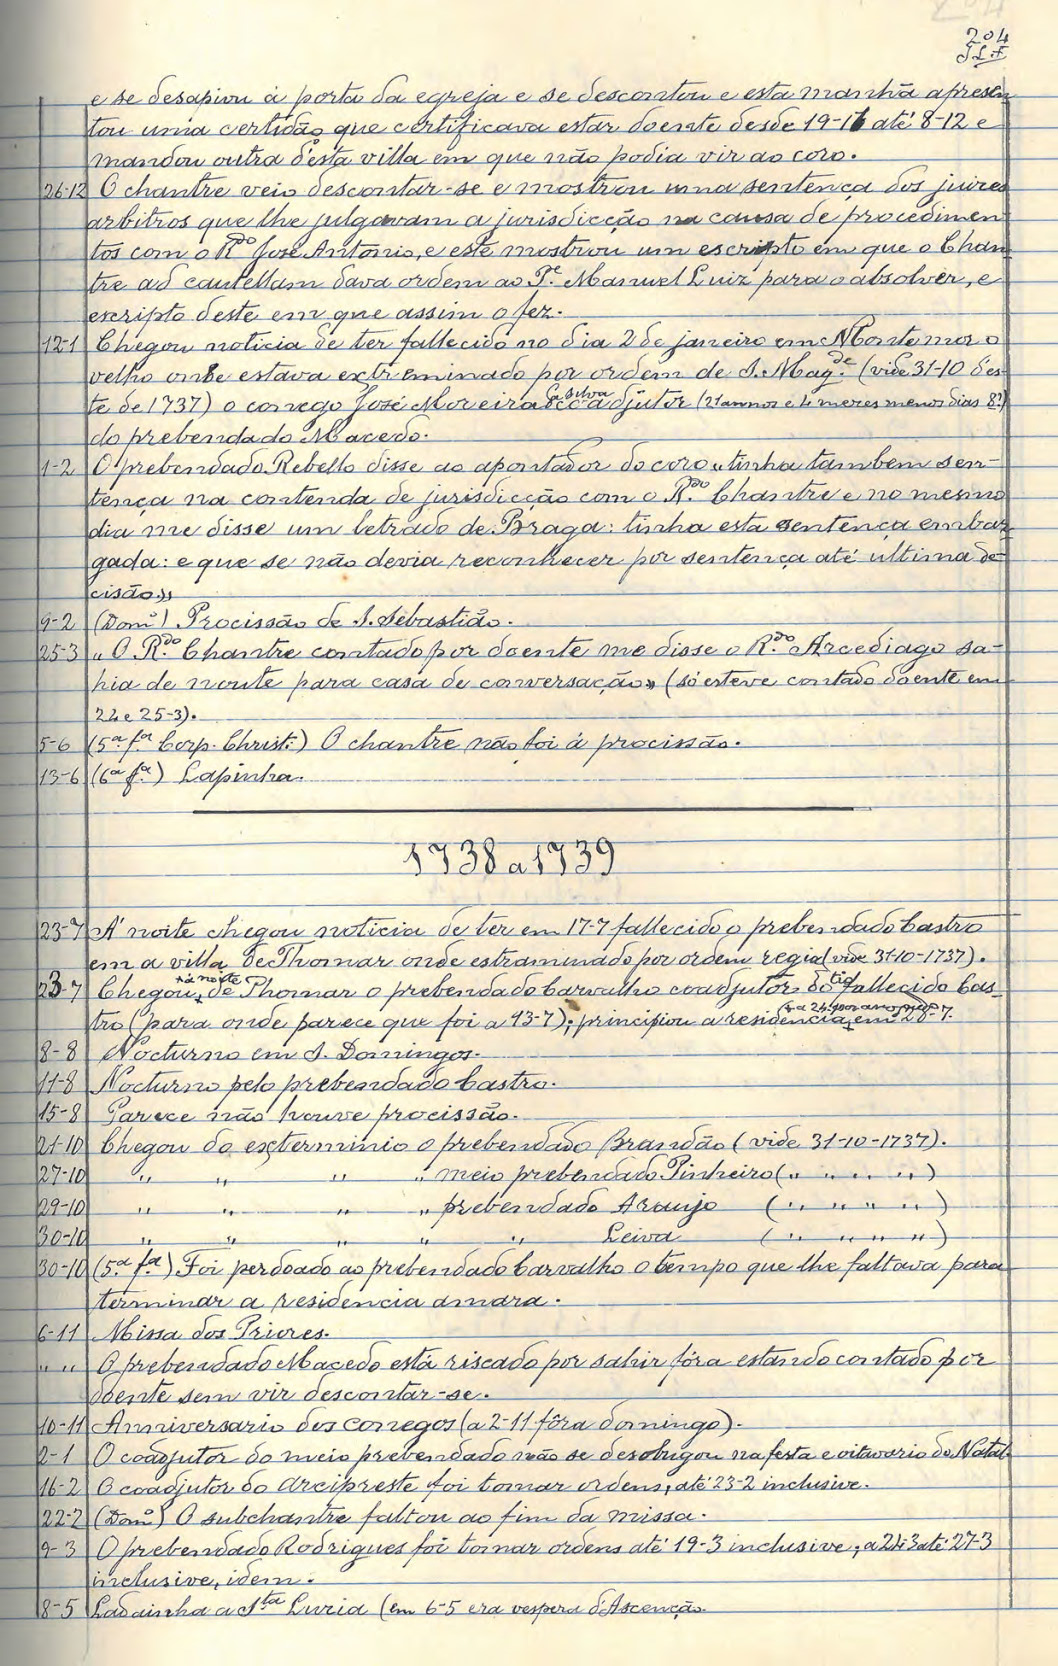 204
e se desapiou á porta da egreja e se descontou e esta manhã apresen
tou uma certidão que certificava estar doente desde 19-11 até 8-12 e
mandou outra d'esta villa em que não podia vir ao coro.
26-12 O chantre veio descontar-se e mostrou uma sentença dos juizes
arbitros que lhe julgavam a jurisdicção na causa de procedimen
tos com o R.do José Antonio, e este mostrou um escripto em que o Chan
tre ad cautellam dava ordem ao P.e Manuel Luiz para o absolver, e
escripto deste em que assim o fez.
12-1 Chegou noticia de ter fallecido no dia 2 de janeiro em Montemor o
velho onde estava exterminado por ordem de S. Mag.de (vide 31-10 d'es
te de 1737) o conego José Moreira da Silva coadjutor (21 annos e 4 mezes menos dias 8?)
do prebendado Macedo.
1-2 O prebendado Rebello disse ao apontador do coro "tinha tambem sen-
tença na contenda de jurisdicção com o R.do Chantre e no mesmo
dia me disse um letrado de Braga: tinha esta sentença embar
gada: e que se não devia reconhecer por sentença até ultima de-
cisão"
9-2 (Dom.o) Procissão de S. Sebastião.
25-3 "O R.do Chantre contado por doente me disse o R.do Arcediago sa-
hia de noute para casa de conversação" (só esteve contado doente em
24 e 25-3).
5-6 (5.a f.a Corp. Christi) O chantre não foi á procissão.
13-6 (6.a f.a) Lapinha.
1738 a 1739
23-7 Á noite chegou noticia de ter em 17-7 fallecido o prebendado Castro
em a villa de Thomar onde estraminado por ordem regia (vide 31-10-1737).
23-7 Chegou, á noite, de Thomar o prebendado Carvalho coadjutor do tio fallecido Cas-
tro (para onde parece que foi a 13-7); principiou a residencia, em 28-7.
8-8 Nocturno em S. Domingos.
11-8 Nocturno pelo prebendado Castro.
15-8 Parece não houve procissão.
21-10 Chegou do exterminio o prebendado Brandão (vide 31-10-1737).
27-10 " " " " meio prebendado Pinheiro (" " " ")
29-10 " " " " prebendado Araujo (" " " ")
30-10 " " " " " Leiva (" " " ")
30-10 (5.a f.a) Foi perdoado ao prebendado Carvalho o tempo que lhe faltava para
terminar a residencia amara.
6-11 Missa dos Priores.
" " O prebendado Macedo está riscado por sahir fóra estando contado por
doente sem vir descontar-se.
10-11 Anniversario dos conegos (a 2-11 fôra domingo).
2-1 O coadjutor do meio prebendado não se desobrigou na festa e oitavario do Natal
16-2 O coadjutor do Arcipreste foi tomar ordens, até 23-2 inclusive.
22-2 (Dom.o) O subchantre faltou ao fim da missa.
9-3 O prebendado Rodrigues foi tomar ordens até 19-3 inclusive; a 24-3 até 27-3
inclusive, idem.
8-5 Ladainha a S.ta Luzia (em 6-5 era vespera d'Ascenção.